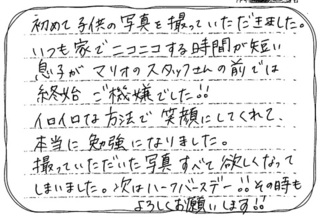 初めて子供の写真を撮っていただきました。
いつも家でニコニコする時間が短い
息子がマリオのスタッフさんの前では
終始 ご機嫌でした!!
イロイロな方法で笑顔にしてくれて、
本当に勉強になりました。
撮っていただいた写真すべて欲しくなって
しまいました。次はハーフバースデー!!その時も
よろしくお願いします!!